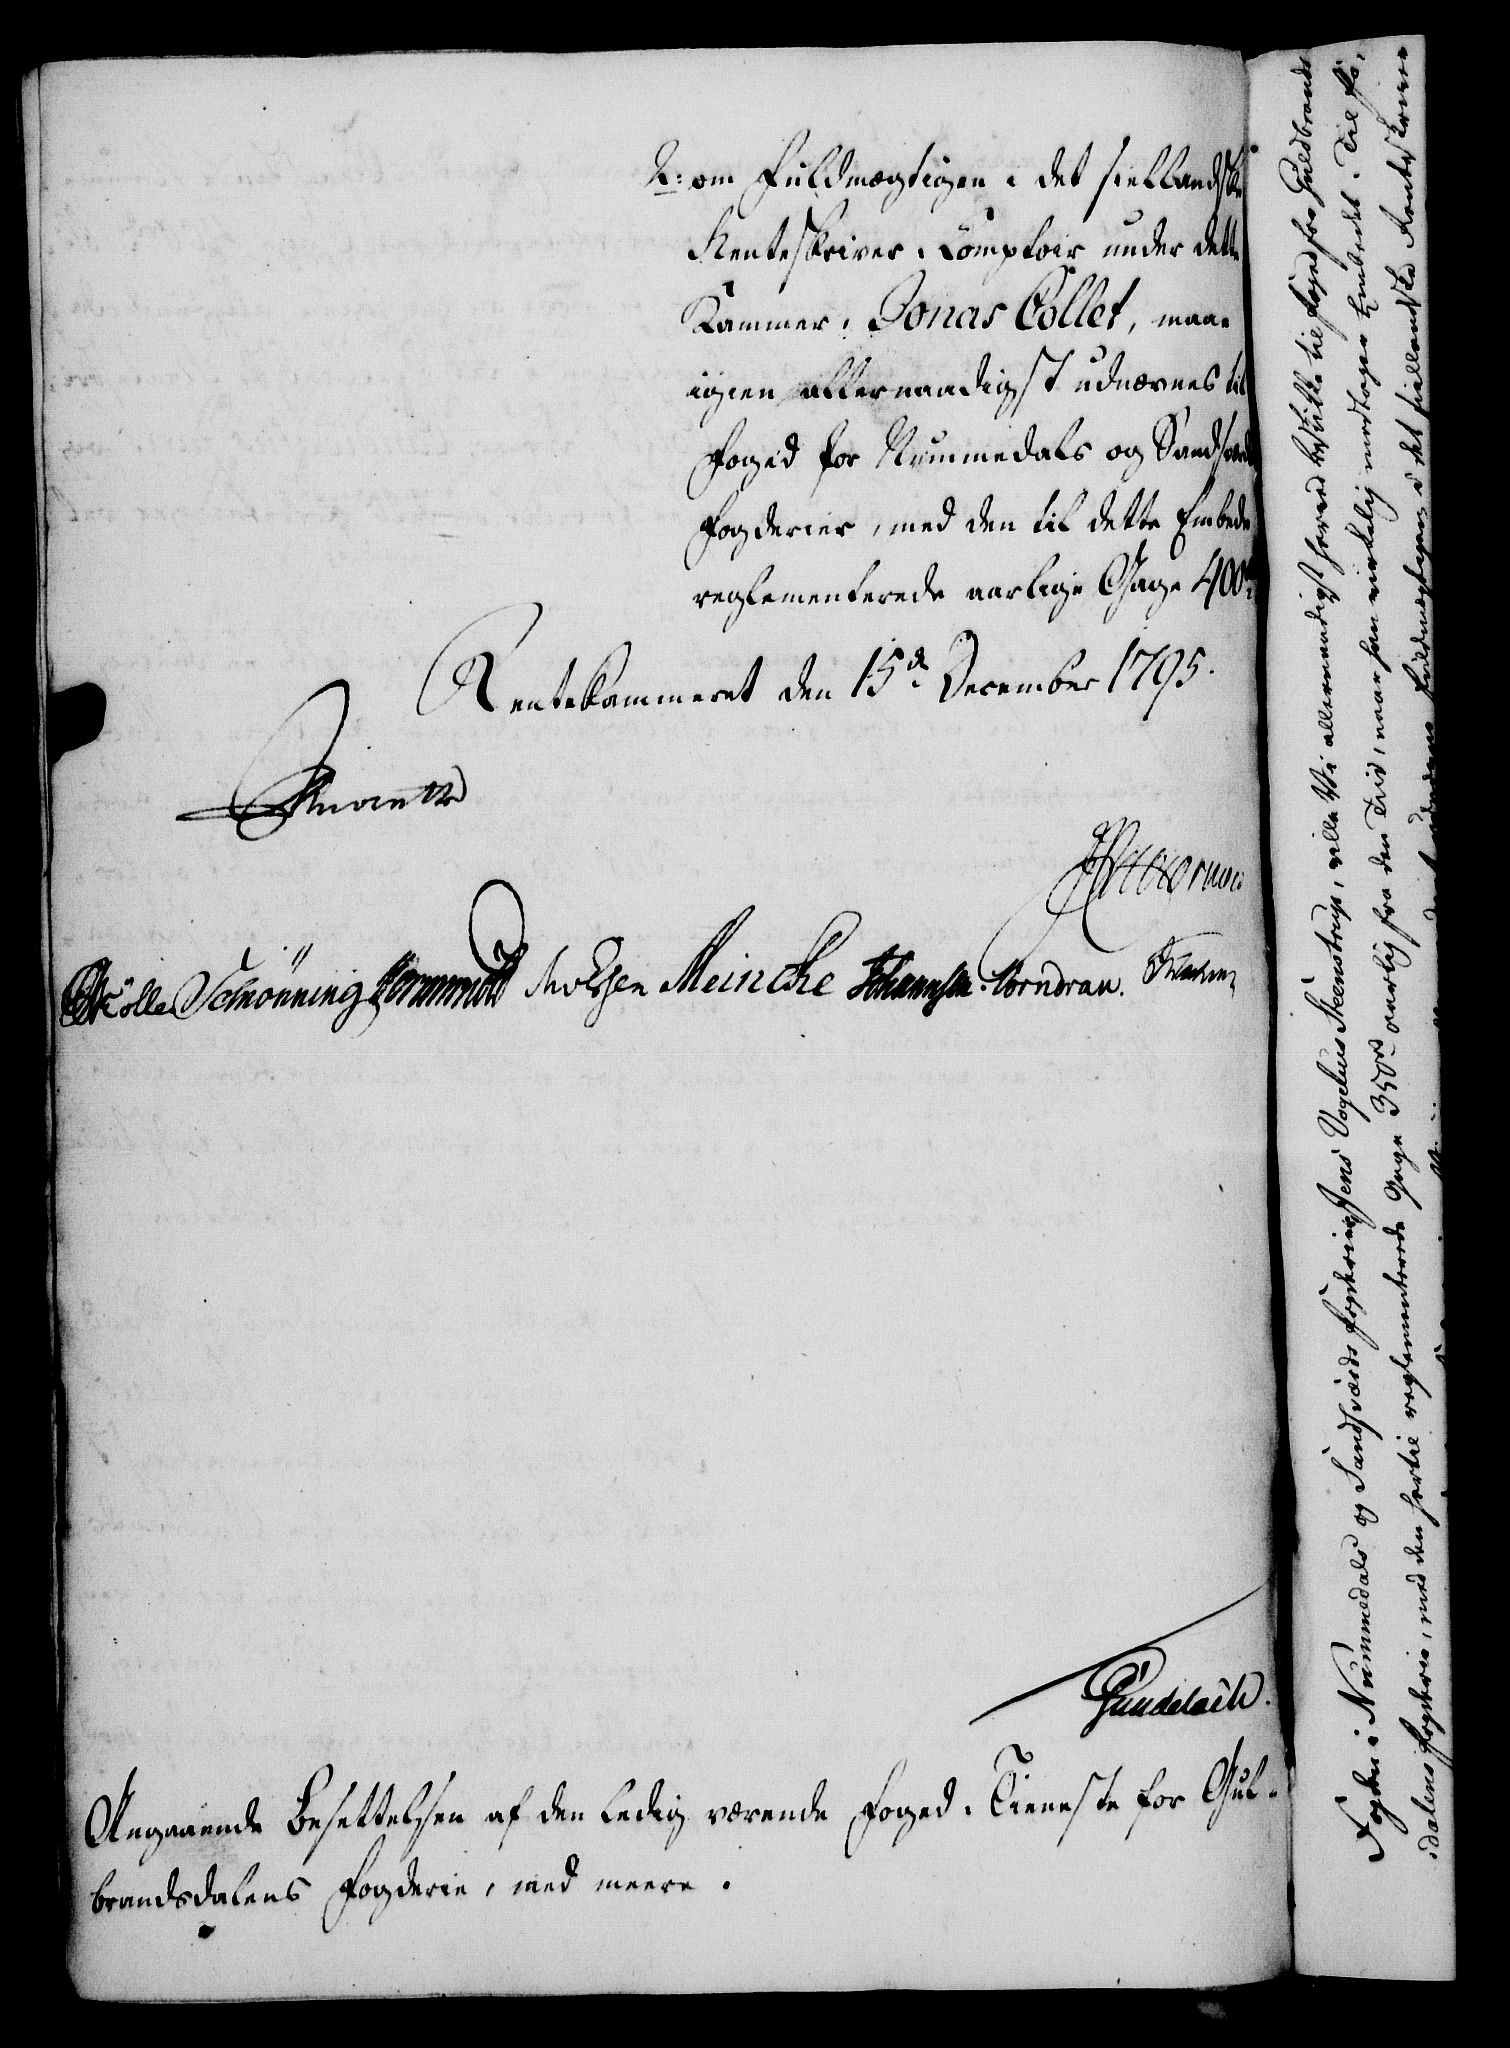 2: om Fuldmægtigen i det siellandske
Renteskriver-Comptoir under dette
Kammer, Jonas Collet, maa
igien allernaadigst udnævnes til
Foged for Nummedals og Sandsværds
Fogderier, med den til dette Embede
reglementerede aarlige Gage 400 rd.
Rentekammeret den 15de December 1795.
Schönning Meincke Johannsen. Vorndran.
Gundelach.
Angaaende Besættelsen af den ledig værende Foged-Tieneste for Gul-
brandsdalens Fogderie, med meere.
Fogden i Nummedals og Sandsværds Fogderier Jens Vogelius Steenstrup, ville Vi allernaadigst herved beskikke til Foged for Guldbrands-
dalens Fogderie, med den hertil reglementerede Gage 350 rd aarlig fra den Tid, naar han virkelig modtager Embedet. Til Fo-
Fuldmægtigen i det siellandske Renteskriver